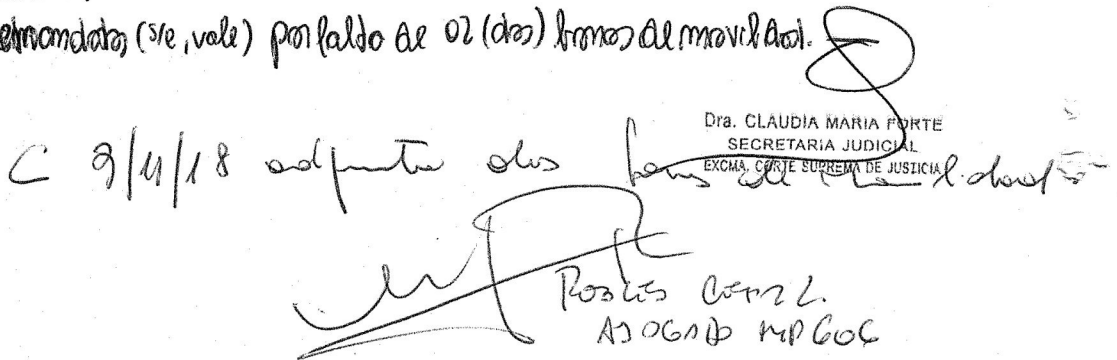 (s/e, vale) por falta de 02 (dos) bonos de movilidad.
Dra. CLAUDIA MARIA FORTE
SECRETARIA JUDICIAL
EXCMA. CORTE SUPREMA DE JUSTICIA
C 9/11/18 adjunta dos bonos de movilidad
ROBLES CESAR L.
ABOGADO MP 606